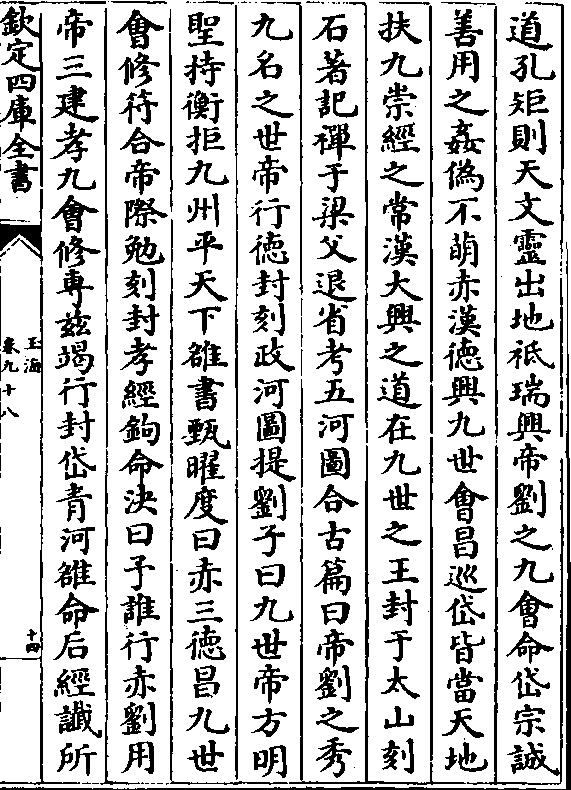 道孔矩則天文靈出地祇瑞興帝劉之九會命岱宗誠
善用之姦偽不萌赤漢德興九世會昌巡岱皆當天地
扶九崇經之常漢大興之道在九世之王封于太山刻
石著記禪于梁父退省考五河圖合古篇曰帝劉之秀
九名之世帝行德封刻政河圖提劉子曰九世帝方明
聖持衡拒九州平天下雒書甄曜度曰赤三德昌九世
會修符合帝際勉刻封孝經鉤命決曰予誰行赤劉用
帝三建孝九會修専兹竭行封岱青河雒命后經䜟所
欽定四庫全書
玉海
卷九十八
十四